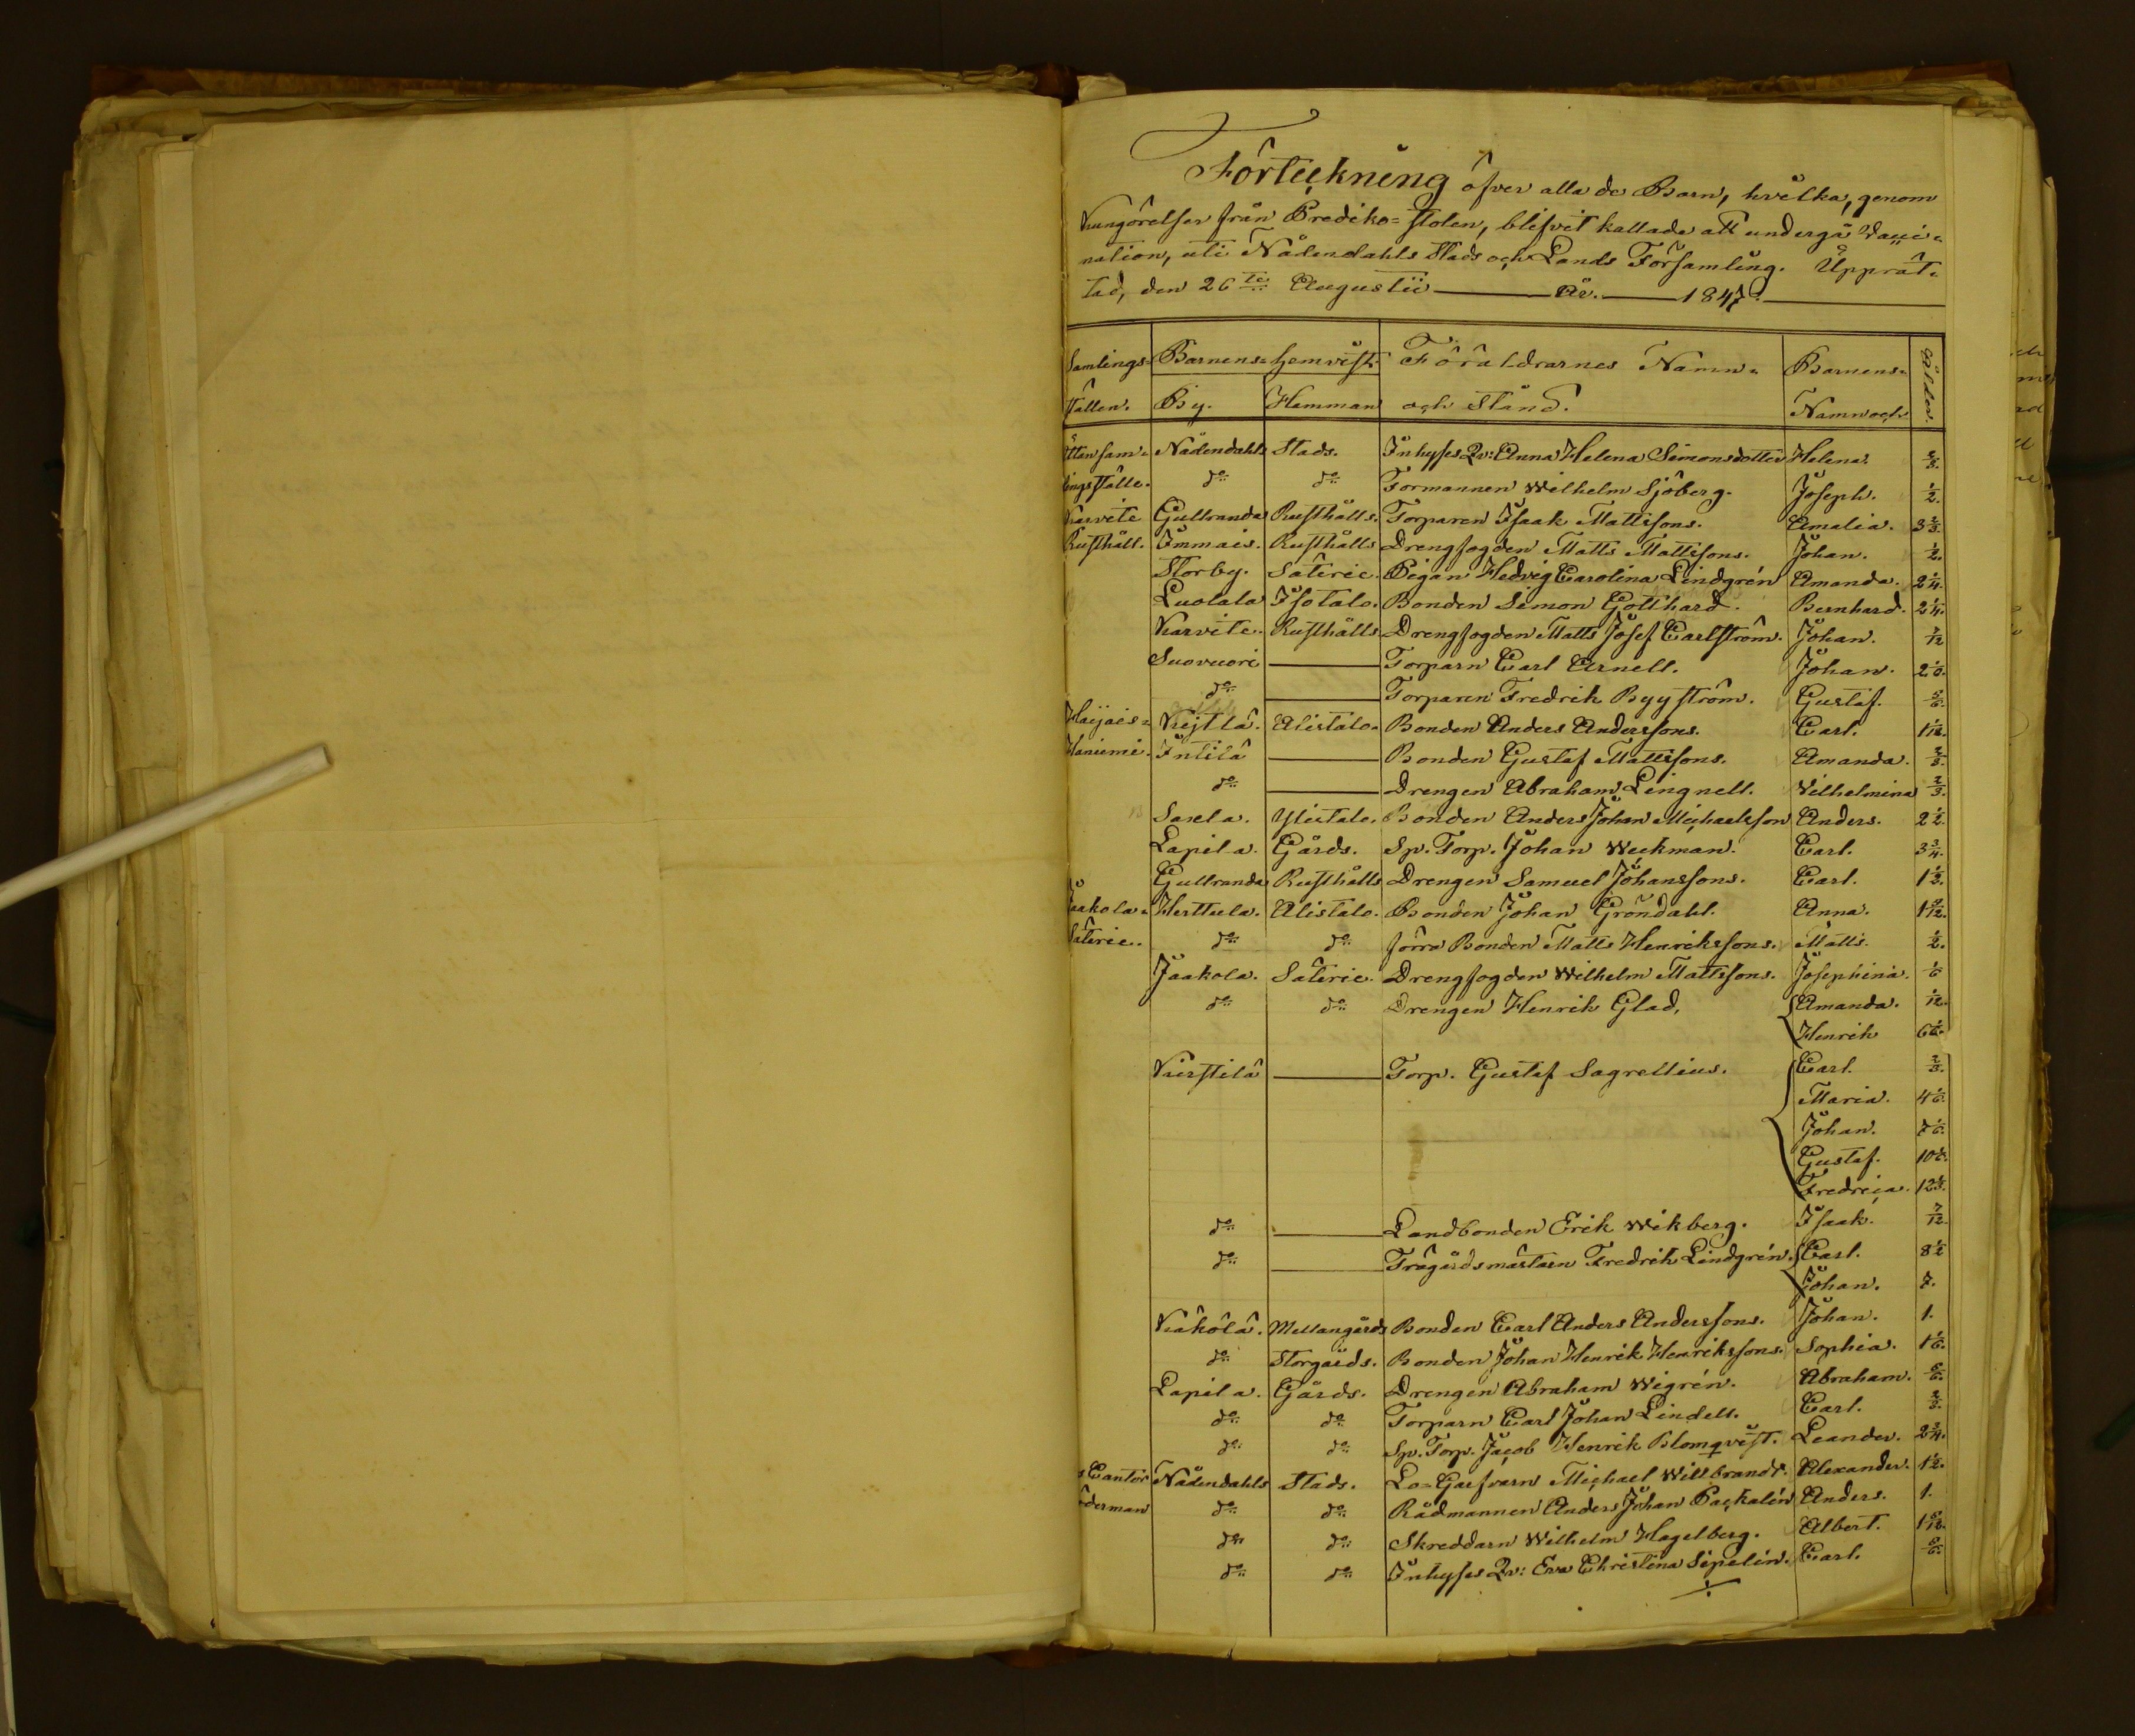 Förteckning öfver alla de Barn, hvilka, genom
Kungörelser från Prediko=stolen, blifvit kallade att undergå Vacci=
nation, uti Nådendahls Stads och Lands Församling. Upprät=
tad, den 26te Augustii År. 1847.
Samlings= Barnens= hemvist. Föräldrarnes Namn= Barnens= Ålder.
ställen. By. Hemman och stånd. Namn och
Nådendahls Stads. Inhyses Qv: Anna Helena Simonsdotter Helena. 2/3.
do do Formannen Wilhelm Sjöberg. Joseph. 1/2.
Karvite Gullranda Rusthålls. Torparen Isaak Mattssons. Amalia. 3 2/3.
Rusthåll. Immais. Rusthålls Drengfogden Matts Mattssons. Johan. 1/2.
Storby. Säterie. Pigan Hedvig Carolina Lindgrén Amanda. 2 1/4.
Luolala Isotalo. Bonden Simon Gotthard. Bernhard. 2 1/4.
Karvite. Rusthålls Drengfogden Matts Josef Carlström. Johan. 7/12
Suovuori Torparn Carl Arnell. Johan. 2
do Torparen Fredrik Byyström. Gustaf. 5/6.
Haijais= Kejtlä. Alistalo. Bonden Anders Anderssons. Carl. 1
Haniemi. Intilä Bonden Gustaf Mattssons. Amanda. 2/3.
do Drengen Abraham Lingnell. Wilhelmina 2/3.
Saxela. Ylistalo. Bonden Anders Johan Michaelsson Anders. 2 1/2.
Lapila. Gårds. Sp. Torp. Johan Weckman. Carl. 3 3/4.
Gullranda Rusthålls Drengen Samuel Johanssons. Carl. 1 1/2.
Jaakola= Herttula. Alistalo. Bonden Johan Gröndahl. Anna. 1
Säterie. do do förra Bonden Matts Henrikssons. Matts. 1/2.
Jaakola. Säterie. Drengfogden Wilhelm Mattssons. Josephina. 1/6
do do Drengen Henrik Glad, Amanda. 1/12.
Henrik 6
Kierstilä Torp. Gustaf Sagrellius. Carl. 2/3.
Maria. 4 1/6.
Johan. 7 1/6.
Gustaf. 10
Fredrica. 12
do Landbonden Erik Wikberg. Isaak. 7/12.
do Trägårdsmästarn Fredrik Lindgrén. Carl. 8 1/2
Johan. 7.
Käkölä. Mellangårds Bonden Carl Anders Anderssons. Johan. 1.
do Storgårds. Bonden Johan Henrik Henrikssons. Sophia. 1 1/6.
Lapila. Gårds. Drengen Abraham Wigrén. Abraham. 5/6.
do do Torparn Carl Johan Lindell. Carl. 2/3.
do do Sp. Torp. Jacob Henrik Blomqvist. Leander. 2 3/4.
Cantor Nådendahls Stads. Lo=Garfvarn Michael Willbrandt. Alexander. 1 1/2.
derman do do Rådmannen Anders Johan Packalén Anders. 1.
do do Skreddarn Wilhelm Hagelberg. Albert. 1
do do Inhyses Qv: Eva Christina Sipelin. Carl. 5/6.